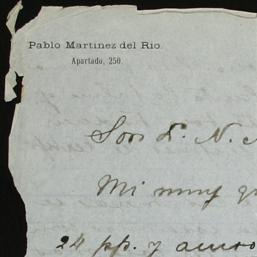 Pablo Martinez del Rio.
Apartado, 250.
Sor D. N.
Mi muy
24 pp. y